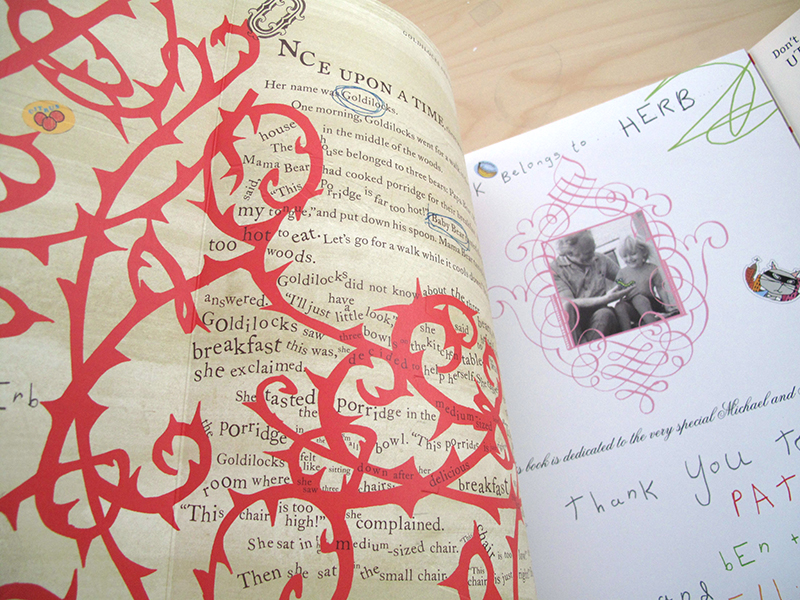 GOLDILOCKS
NCE UPON A TIME
Her name was Goldilocks.
One morning, Goldilocks went for a
house in the middle of the woods.
The house belonged to three bears: Papa
Mama Bear had cooked porridge for their
said, "This porridge is far too hot!" Baby Bear
my tongue," and put down his spoon. Mama Bear
too hot to eat. Let's go for a walk while it cools down
woods.
Goldilocks did not know about the three
answered. "I'll just have a little look," she said
Goldilocks saw three bowls on the kitchen table
breakfast this was, she decided to help herself. She
she exclaimed.
She tasted the porridge in the medium-sized
the porridge in the small bowl. "This porridge is
Goldilocks felt like sitting down after her delicious breakfast
room where she saw three chairs
"This chair is too high!" she complained.
She sat in medium-sized chair. "This chair is too
Then she sat in the small chair. "This chair is just right
CITRUS
Erb
K Belongs to HERB
book is dedicated to the very special Michael and
Thank You to
PAT
bEn +
and
Don't